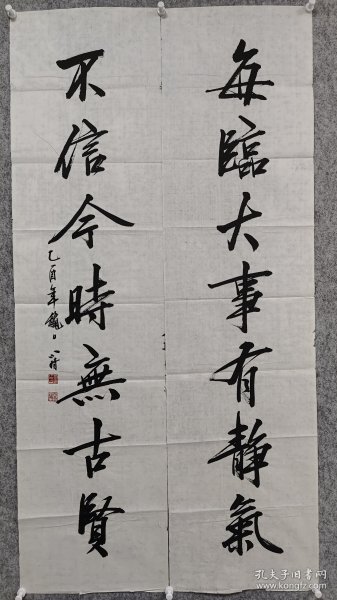 每臨大事有靜氣
不信今時無古賢
乙酉年
孔夫子旧书网
www.kongfz.com